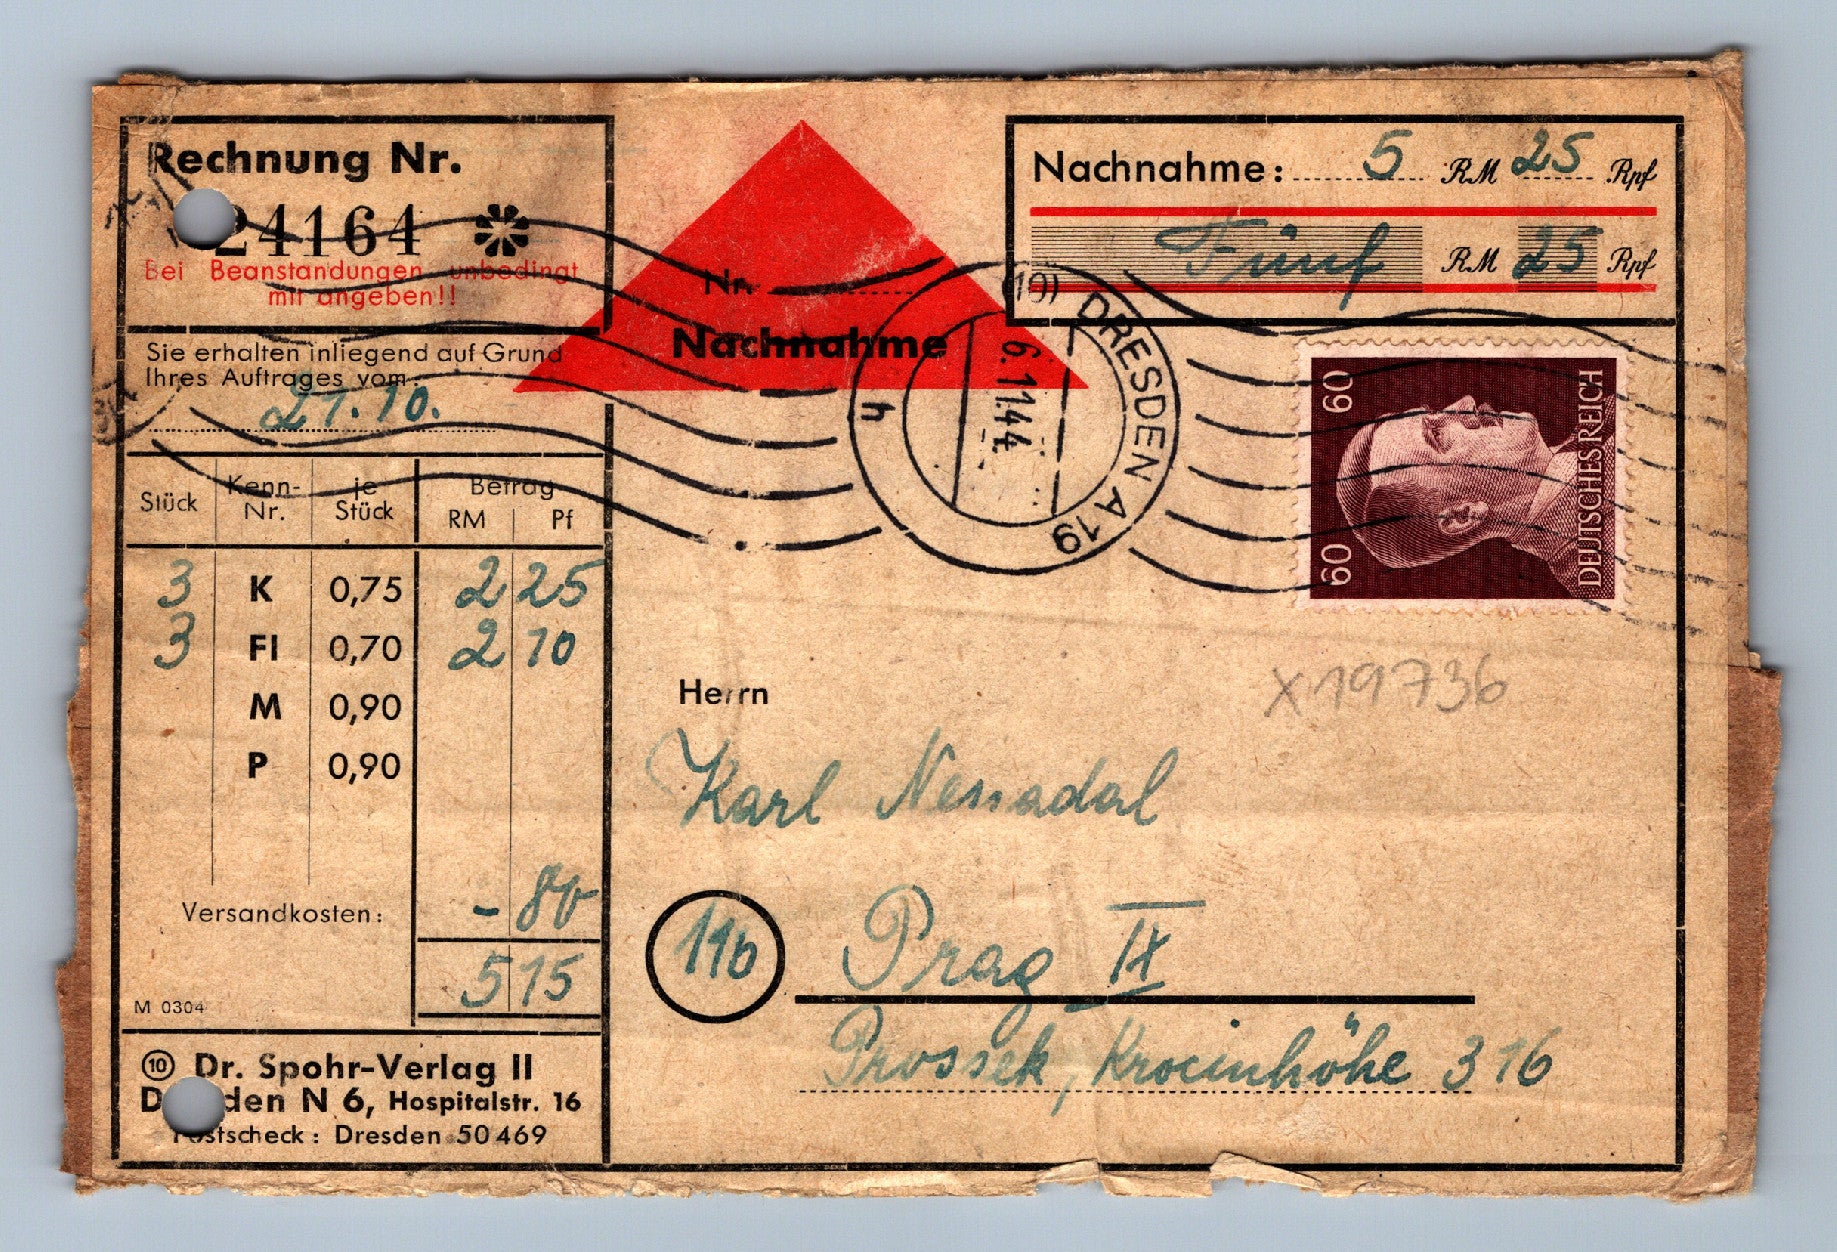 Rechnung Nr.
24164
Bei Beanstandungen unbedingt
mit angeben!!
Sie erhalten inliegend auf Grund
Ihres Auftrages vom:
21.10.
Stück Kenn-Nr. je Stück Betrag RM Pf
3 K 0,75 2 25
3 Fl 0,70 2 10
M 0,90
P 0,90
Versandkosten: - 80
5 15
M 0304
(10) Dr. Spohr-Verlag II
D den N 6, Hospitalstr. 16
Postscheck: Dresden 50 469
Nr.
Nachnahme
Nachnahme: 5 RM 25 Rpf
Fünf RM 25 Rpf
(10) DRESDEN A 19
6.11.44.
h
60 60
DEUTSCHES REICH
X19736
Herrn
Karl
11b Prag IX
Prossek, Krocinhöhe 316